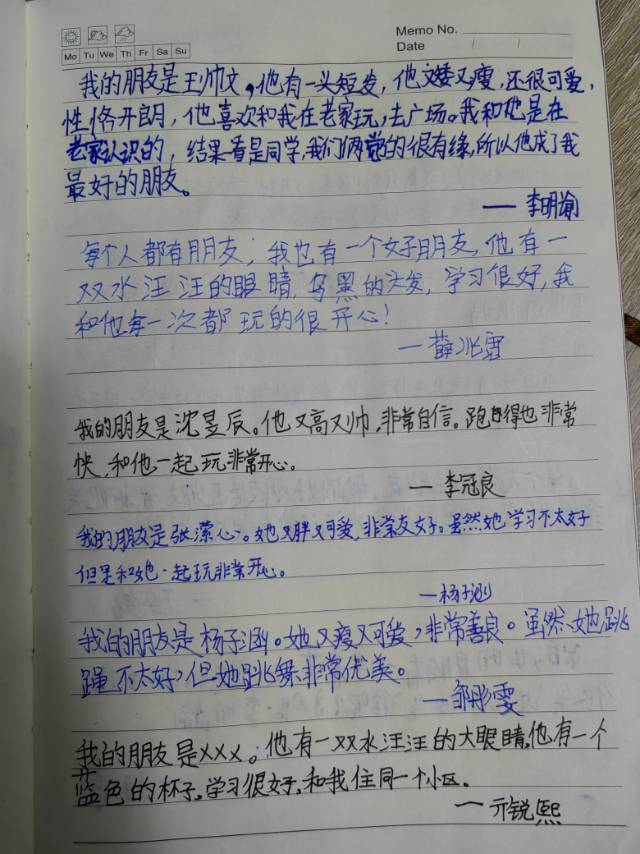 Memo No.
Mo Tu We Th Fr Sa Su
Date / /
我的朋友是王帅文,他有一头短发,他又矮又瘦,还很可爱,
性恪开朗,他喜欢和我在老家玩,去广场。我和他是在
老家认识的,结果看是同学,我们俩觉的很有缘,所以他成了我
最好的朋友。
——李明谕
每个人都有朋友,我也有一个好朋友,他有一
双水汪汪的眼睛,乌黑的头发,学习很好,我
和他每一次都玩的很开心!
—薛兆雷
我的朋友是沈昱辰。他又高又帅,非常自信。跑得也非常
快,和他一起玩非常开心。
——李冠良
我的朋友是张潆心。她又胖又可爱,非常友好。虽然她学习不太好
但是和她一起玩非常开心。
—杨子涵
我的朋友是杨子涵。她又瘦又可爱,非常善良。虽然她跳
蹿不太好,但她跳舞非常优美。
——邹彤雯
我的朋友是XXX。他有一双水汪汪的大眼睛,他有一个
蓝色的杯子。学习很好,和我住同一个小区。
——亓锐熙